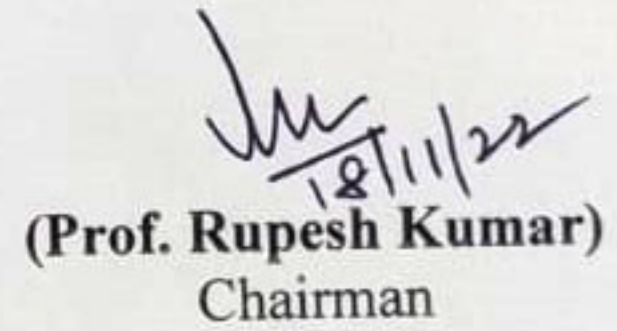 18/11/22
(Prof. Rupesh Kumar)
Chairman